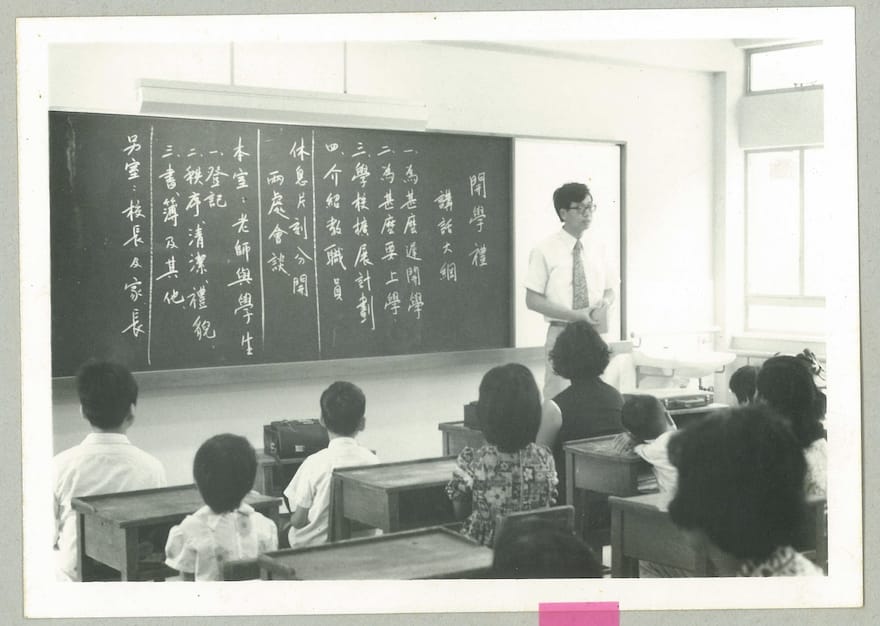 開學禮
講話大綱
一、為甚麽遲開學
二、為甚麽要上學
三、學校擴展計劃
四、介紹教職員
休息片刻分開
兩處會談
本室：老師與學生
一、登記
二、秩序、清潔、禮貌
三、書簿及其他
另室：校長及家長